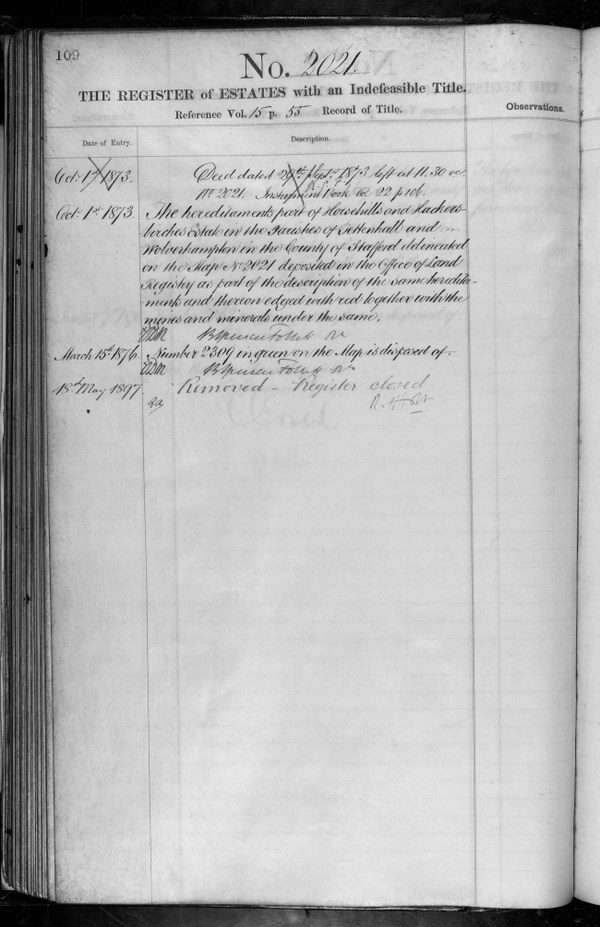 109
No. 2021.
THE REGISTER of ESTATES with an Indefeasible Title.
Reference Vol. 15 p. 55 Record of Title.
Observations.
Date of Entry.
Description.
Oct. 1st 1873. Deed dated 29th Sept. 1873 left at 11.30 oc.
No. 2021. Instrument Book 22 p 106.
Oct. 1st 1873. The hereditaments part of Horsehills and Hackers-
birches Estate in the Parishes of Tettenhall and
Wolverhampton in the County of Stafford delineated
on the Map No. 2021 deposited in the Office of Land
Registry as part of the description of the same heredita-
ments and thereon edged with red together with the
mines and minerals under the same.
B Spencer Follett
March 15th 1876. Number 2309 in green on the Map is disposed of.
B Spencer Follett
18th May 1897 Removed – Register closed
Closed